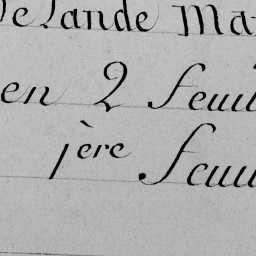 De Lande Ma
en 2 feuil
1ère feuil